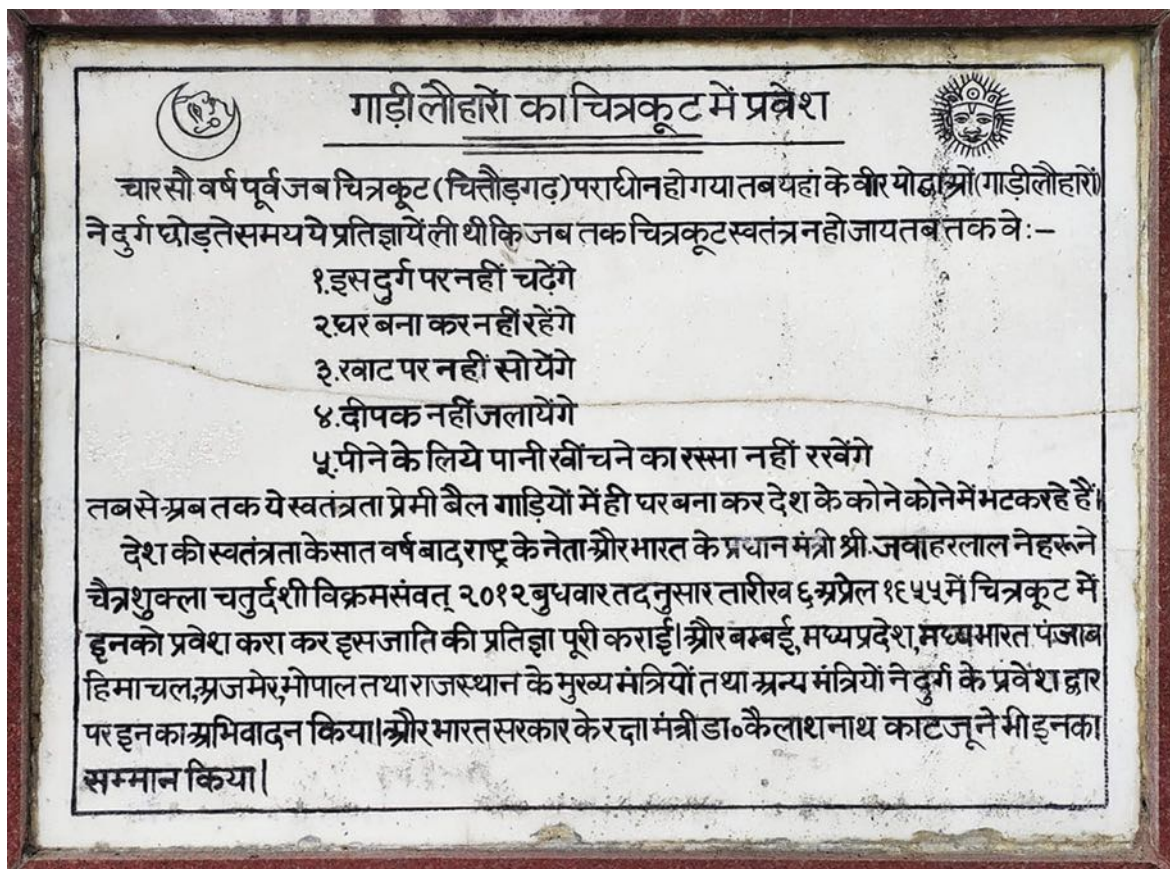 गाड़ी लौहारों का चित्रकूट में प्रवेश
चार सौ वर्ष पूर्व जब चित्रकूट (चित्तौड़गढ़) पराधीन हो गया तब यहां के वीर योद्धाओं (गाड़ी लौहारों)
ने दुर्ग छोड़ते समय ये प्रतिज्ञायें ली थी कि जब तक चित्रकूट स्वतंत्र न हो जाय तब तक वे :-
१.इस दुर्ग पर नहीं चढ़ेंगे
२.घर बना कर नहीं रहेंगे
३.खाट पर नहीं सोयेंगे
४.दीपक नहीं जलायेंगे
५.पीने के लिये पानी खींचने का रस्सा नहीं रखेंगे
तब से अब तक ये स्वतंत्रता प्रेमी बैल गाड़ियों में ही घर बना कर देश के कोने कोने में भटक रहे हैं।
देश की स्वतंत्रता के सात वर्ष बाद राष्ट्र के नेता और भारत के प्रधान मंत्री श्री. जवाहरलाल नेहरू ने
चैत्र शुक्ला चतुर्दशी विक्रम संवत् २०१२ बुधवार तदनुसार तारीख ६ अप्रेल १९५५ में चित्रकूट में
इनको प्रवेश करा कर इस जाति की प्रतिज्ञा पूरी कराई। और बम्बई, मध्य प्रदेश, मध्य भारत पंजाब
हिमाचल, अजमेर, भोपाल तथा राजस्थान के मुख्य मंत्रियों तथा अन्य मंत्रियों ने दुर्ग के प्रवेश द्वार
पर इन का अभिवादन किया। और भारत सरकार के रक्षा मंत्री डा० कैलाश नाथ काटजू ने भी इनका
सम्मान किया।